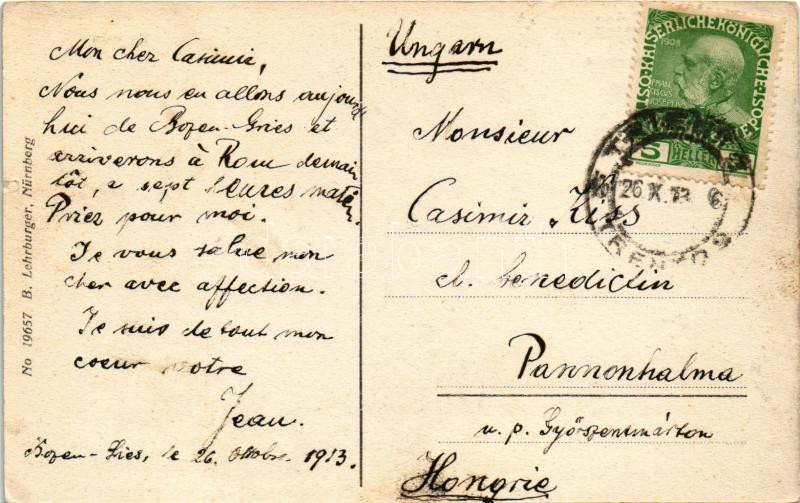 Mon cher Casimir,
Nous nous en allons aujourd'
hui de Bozen-Gries et
arriverons à Rome demain
tôt, a sept heures matin.
Priez pour moi.
Je vous salue mon
cher avec affection.
Je suis de tout mon
coeur votre
Jean.
Bozen-Gries, le 26. Oktobre. 1913.
No 19657 B. Lehrburger, Nürnberg
Ungarn
Monsieur
Casimir Kiss
cl. benedictin
Pannonhalma
u. p. Győszentmárton
Hongrie
1908
5
HELLER
26 X. 13
darabanth